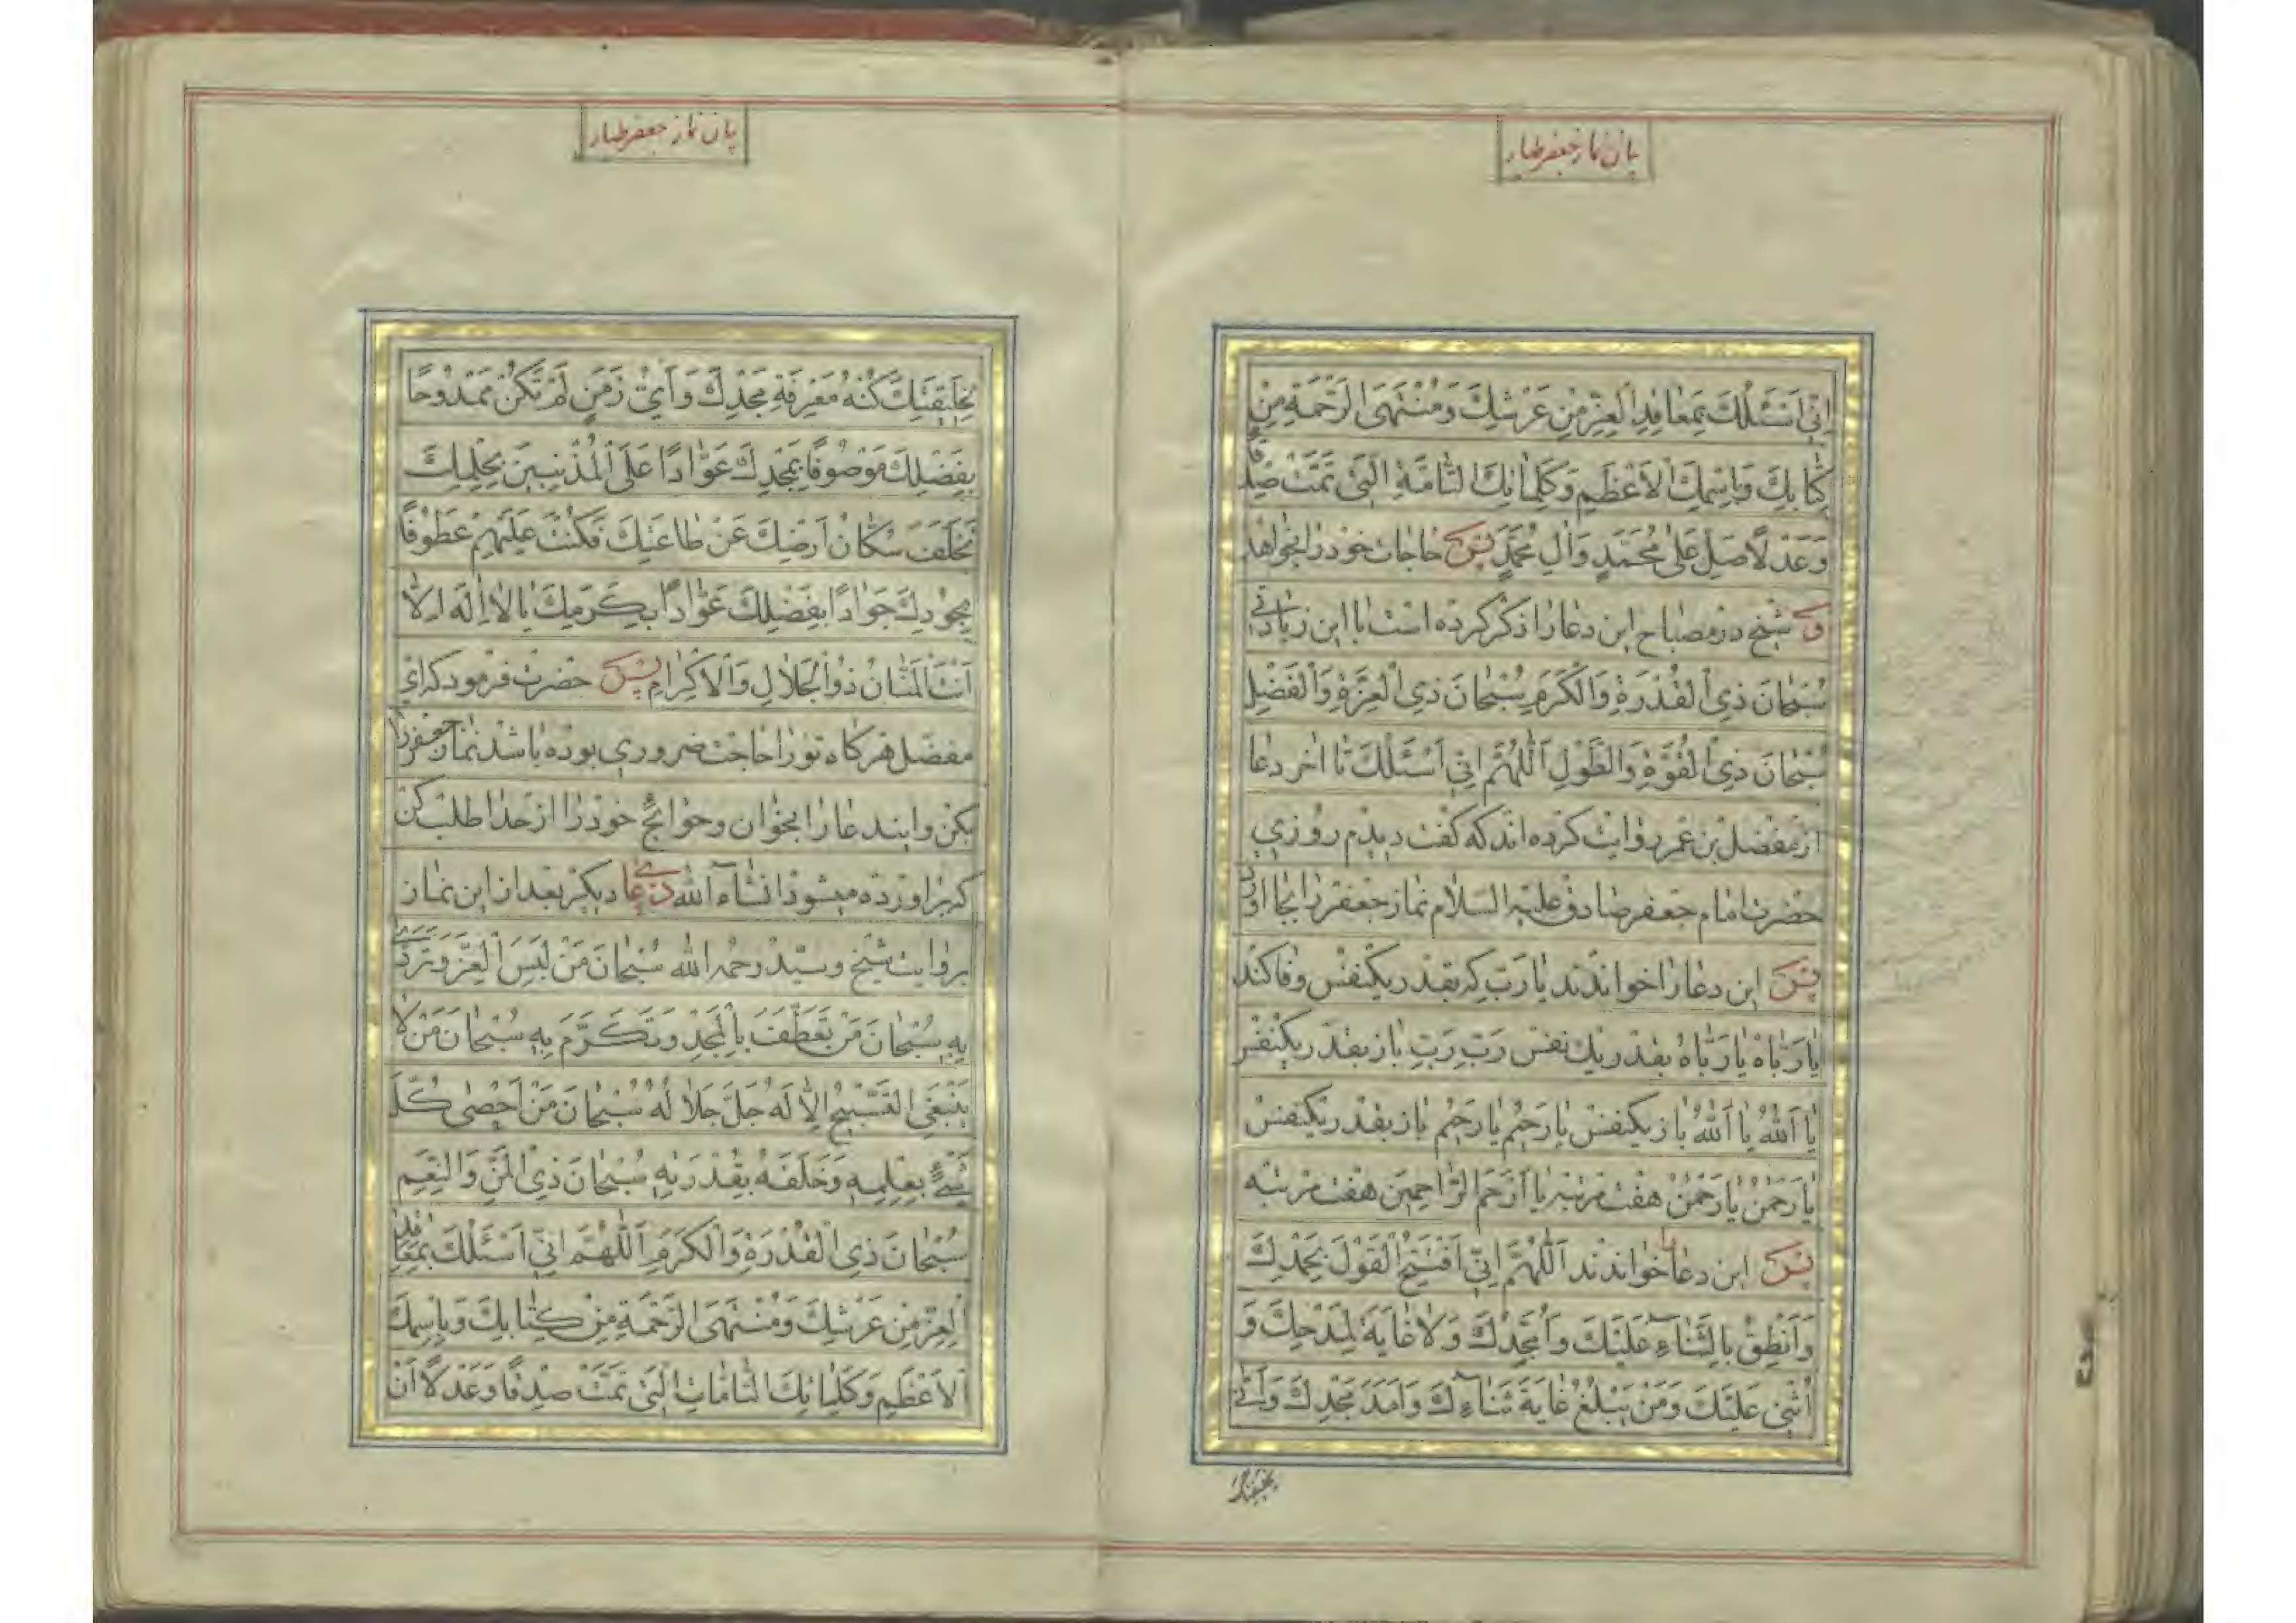 بیان نماز جعفر طیار
اِنّی اَسْئَلُكَ بِمَعاقِدِ الْعِزِّ مِنْ عَرْشِكَ وَمُنْتَهَی الرَّحْمَةِ مِنْ
كِتابِكَ وَبِاسْمِكَ الْاَعْظَمِ وَكَلِماتِكَ التّامَّةِ الَّتی تَمَّتْ صِدْقًا
وَعَدْلًا صَلِّ عَلی مُحَمَّدٍ وَآلِ مُحَمَّدٍ پس حاجات خود را بخواهد
و شیخ در مصباح این دعا را ذکر کرده است با این زیادتی
سُبْحانَ ذِی الْقُدْرَةِ وَالْكَرَمِ سُبْحانَ ذِی الْعِزَّةِ وَالْفَضْلِ
سُبْحانَ ذِی الْقُوَّةِ وَالطَّوْلِ اَللّهُمَّ اِنّی اَسْئَلُكَ تا اخر دعا
از مفضل بن عمر روایت کرده اند که گفت دیدم روزی
حضرت امام جعفر صادق علیه السلام نماز جعفر را بجا اورد
پس این دعا را خواندند یا رَبِّ که بقدر یکنفس وفا کند
یا رَبّاهُ یا رَبّاهُ بقدر یك نفس رَبِّ رَبِّ باز بقدر یکنفس
یا اَللّهُ یا اَللّهُ باز یکنفس یا رَحیمُ یا رَحیمُ باز بقدر یکنفس
یا رَحْمنُ یا رَحْمنُ هفت مرتبه یا اَرْحَمَ الرّاحِمینَ هفت مرتبه
پس این دعا را خواندند اَللّهُمَّ اِنّی اَفْتَتِحُ الْقَوْلَ بِحَمْدِكَ
وَاَنْطِقُ بِالثَّناءِ عَلَیْكَ وَاُمَجِّدُكَ وَلا غایَةَ لِمَدْحِكَ وَ
اُثْنی عَلَیْكَ وَمَنْ یَبْلُغُ غایَةَ ثَناءِكَ وَاَمَدَ مَجْدِكَ وَاَنّی
بیان نماز جعفر طیار
لِخَلیقَتِكَ كُنْهُ مَعْرِفَةِ مَجْدِكَ وَاَیُّ زَمَنٍ لَمْ تَكُنْ مَمْدُوحًا
بِفَضْلِكَ مَوْصُوفًا بِمَجْدِكَ عَوّادًا عَلَی الْمُذْنِبینَ بِحِلْمِكَ
تَخَلَّفَ سُكّانُ اَرْضِكَ عَنْ طاعَتِكَ فَكُنْتَ عَلَیْهِمْ عَطُوفًا
بِجُودِكَ جَوادًا بِفَضْلِكَ عَوّادًا بِكَرَمِكَ یا لا اِلهَ اِلّا
اَنْتَ الْمَنّانُ ذُو الْجَلالِ وَالْاِكْرامِ پس حضرت فرمود که ای
مفضل هر کاه تو را حاجت ضروری بوده باشد نماز جعفر را
بکن و این دعا را بخوان و حوائج خود را از خدا طلب کن
که براورده میشود انشاء الله دعای دیکر بعد از این نماز
بروایت شیخ و سید رحمه الله سُبْحانَ مَنْ لَبِسَ الْعِزَّ وَتَرَدّی
بِهِ سُبْحانَ مَنْ تَعَطَّفَ بِالْمَجْدِ وَتَكَرَّمَ بِهِ سُبْحانَ مَنْ لا
یَنْبَغِی التَّسْبیحُ اِلّا لَهُ جَلَّ جَلالُهُ سُبْحانَ مَنْ اَحْصی كُلَّ
شَیْءٍ بِعِلْمِهِ وَخَلَقَهُ بِقُدْرَتِهِ سُبْحانَ ذِی الْمَنِّ وَالنِّعَمِ
سُبْحانَ ذِی الْقُدْرَةِ وَالْكَرَمِ اَللّهُمَّ اِنّی اَسْئَلُكَ بِمَعاقِدِ
الْعِزِّ مِنْ عَرْشِكَ وَمُنْتَهَی الرَّحْمَةِ مِنْ كِتابِكَ وَبِاسْمِكَ
الْاَعْظَمِ وَكَلِماتِكَ التّامّاتِ الَّتی تَمَّتْ صِدْقًا وَعَدْلًا اَنْ